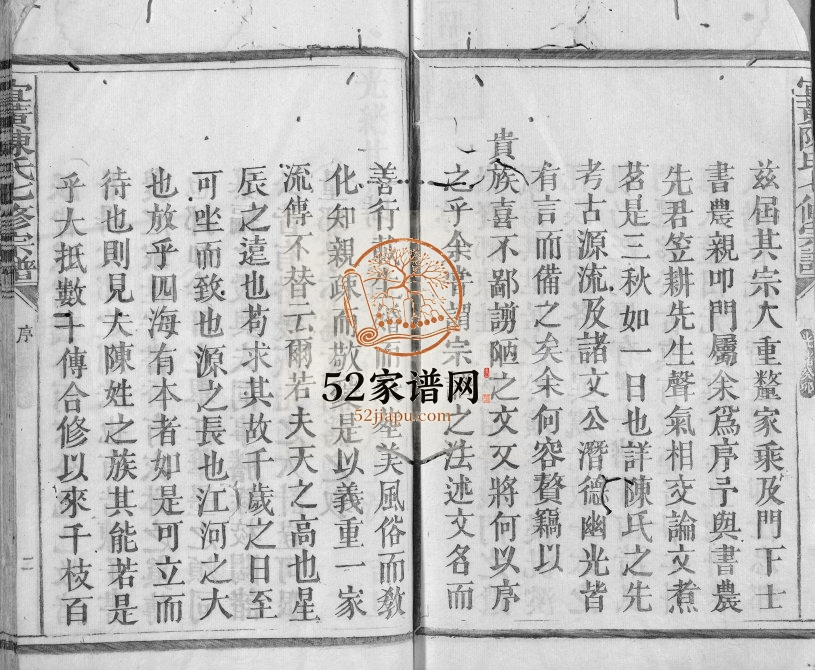 茲屆其宗大重釐家乘及門下士
書農親叩門屬余爲序予與書農
先君笠耕先生聲氣相交論文煮
茗是三秋如一日也詳陳氏之先
考古源流及諸文公潛德幽光皆
有言而備之矣余何容贅竊以
貴族喜不鄙謭陋之文又將何以序
之乎余嘗謂宗 之法述文名而
善行 而 美風俗而敎
化知親疎而敬 是以義重一家
流傳不替云爾若夫天之高也星
辰之遠也苟求其故千歲之日至
可坐而致也源之長也江河之大
也放乎四海有本者如是可立而
待也則見夫陳姓之族其能若是
乎大抵數十傳合修以來千枝百
陳氏七修宗譜
序
二
52家谱网
52jiapu.com